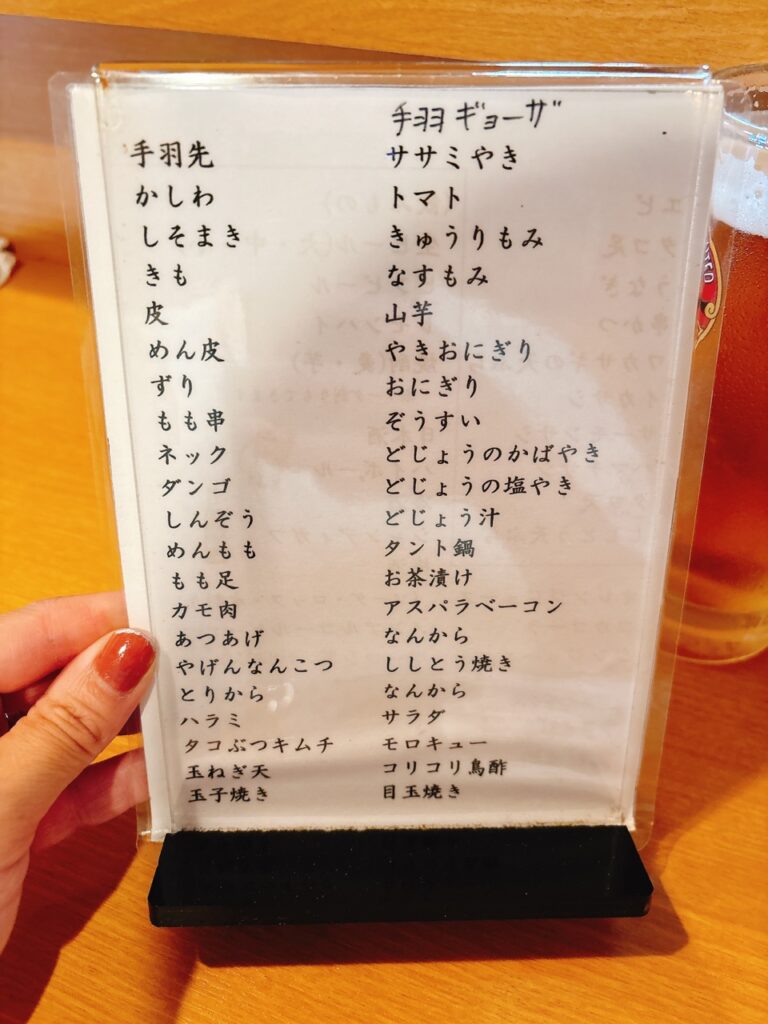 手羽ギョーザ
手羽先
かしわ
しそまき
きも
皮
めん皮
ずり
もも串
ネック
ダンゴ
しんぞう
めんもも
もも足
カモ肉
あつあげ
やげんなんこつ
とりから
ハラミ
タコぶつキムチ
玉ねぎ天
玉子焼き
ササミやき
トマト
きゅうりもみ
なすもみ
山芋
やきおにぎり
おにぎり
ぞうすい
どじょうのかばやき
どじょうの塩やき
どじょう汁
タント鍋
お茶漬け
アスパラベーコン
なんから
ししとう焼き
なんから
サラダ
モロキュー
コリコリ鳥酢
目玉焼き